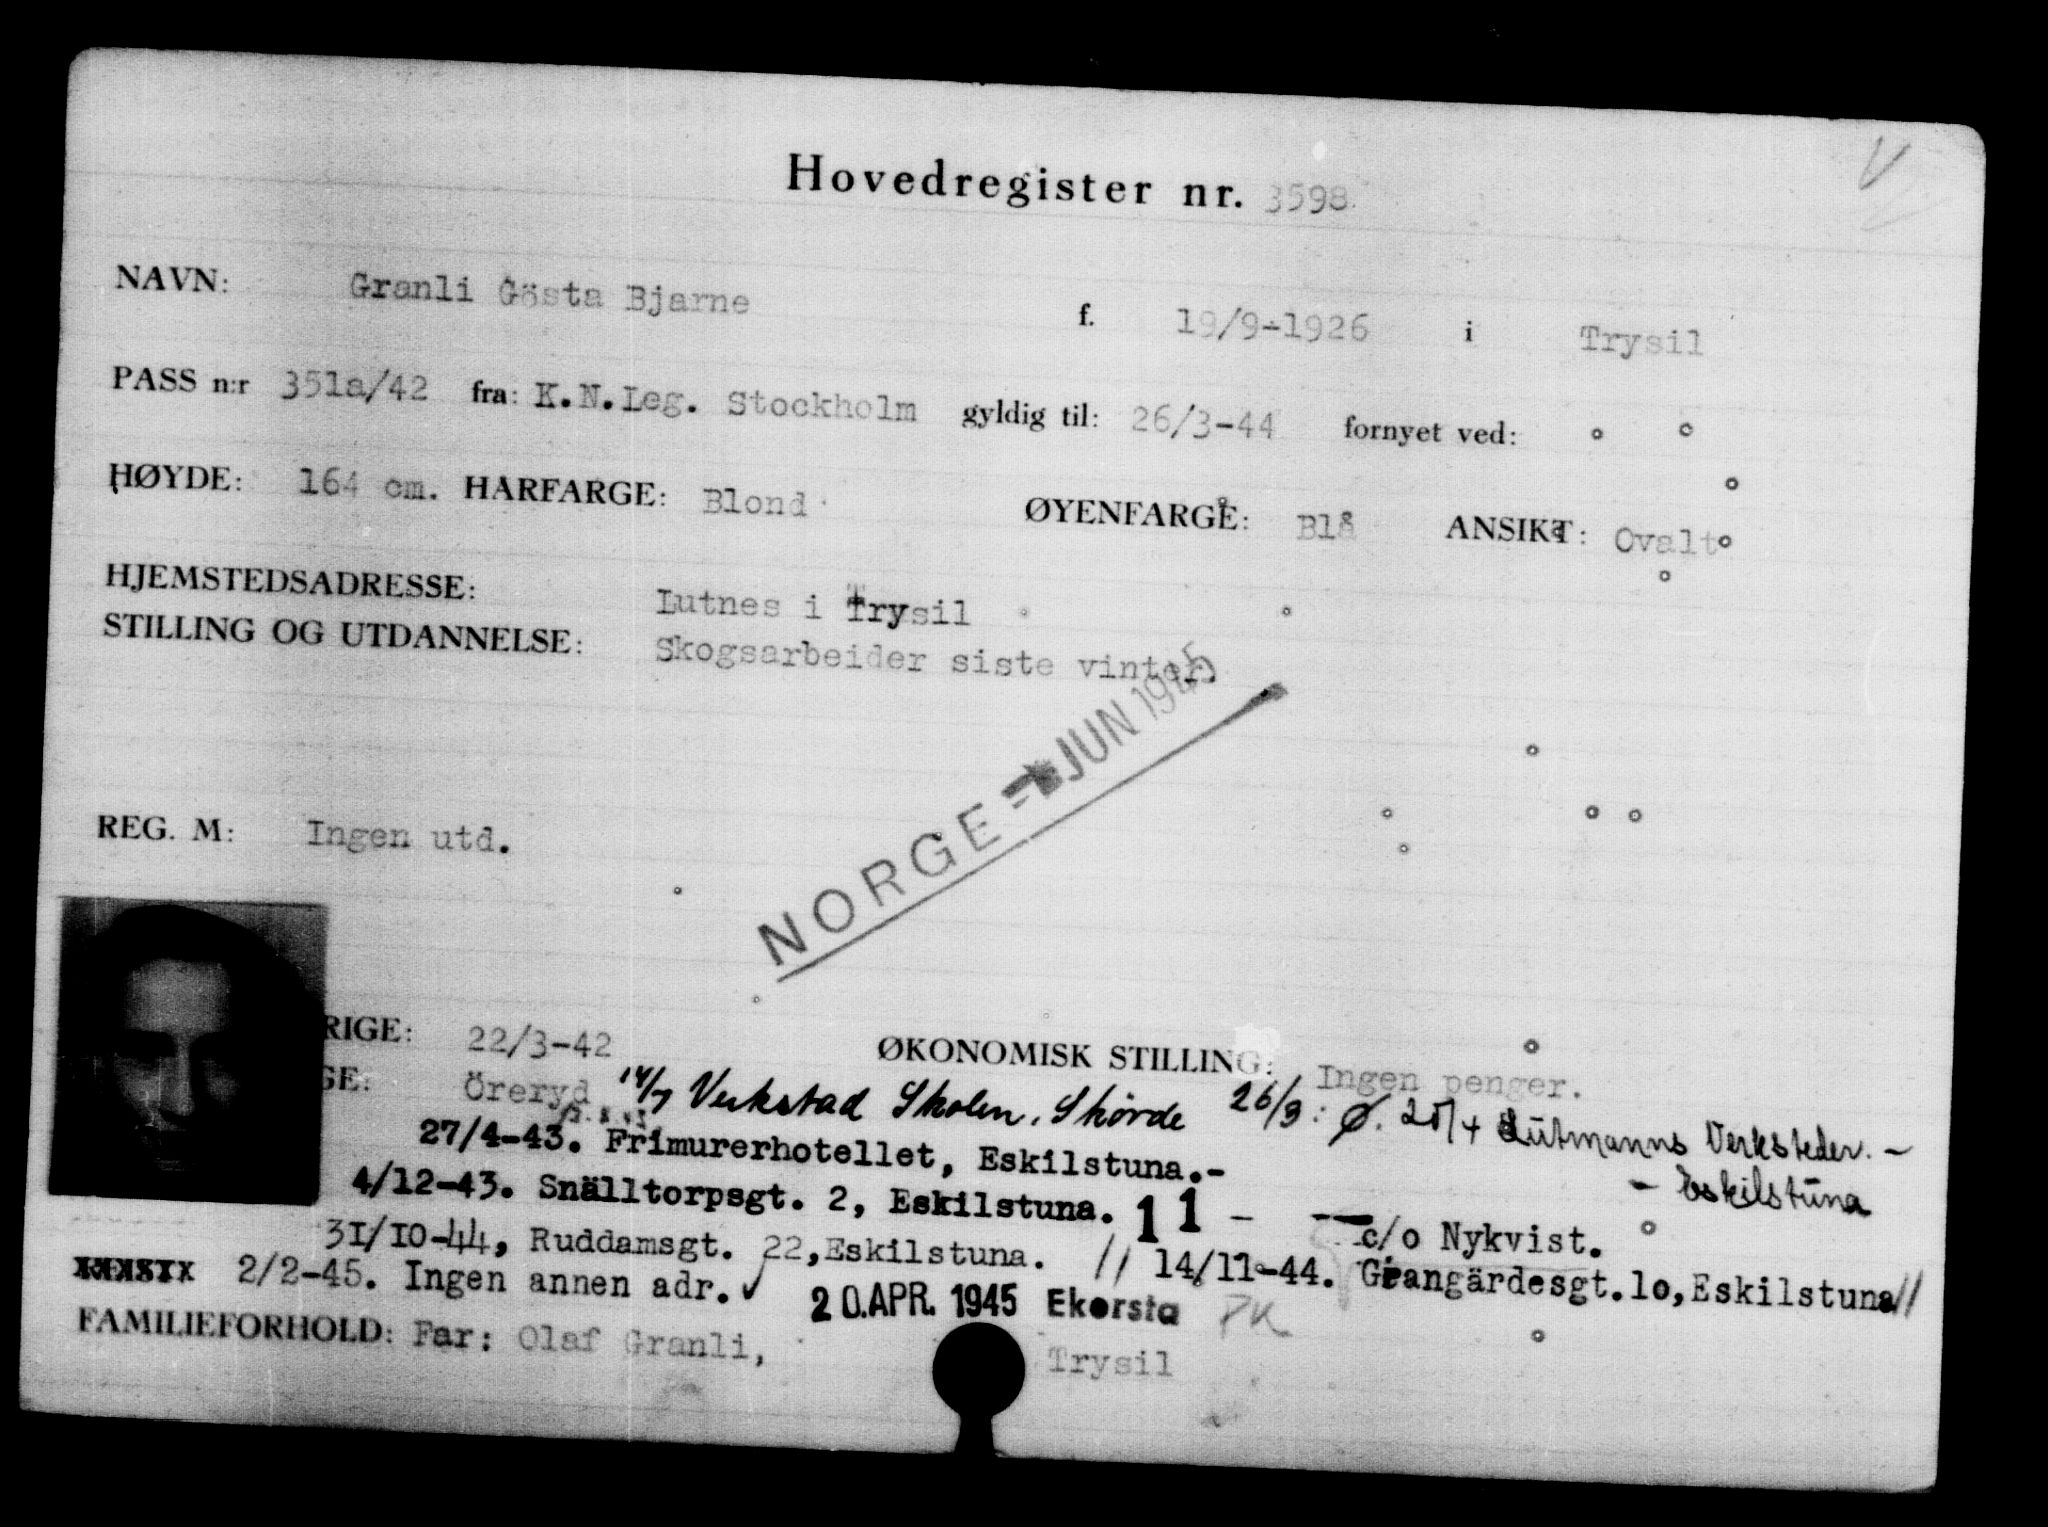 Hovedregister nr. 3598
NAVN: Granli Gösta Bjarne f. 19/9-1926 i Trysil
PASS n:r 351a/42 fra: K.N.Leg. Stockholm gyldig til: 26/3-44 fornyet ved:
HØYDE: 164 cm. HARFARGE: Blond ØYENFARGE: Blå ANSIKT: Ovalt
HJEMSTEDSADRESSE: Lutnes i Trysil
STILLING OG UTDANNELSE: Skogsarbeider siste vinter.
NORGE - JUN 1945
REG. M: Ingen utd.
RIGE: 22/3-42 ØKONOMISK STILLING: Ingen penger.
GE: Öreryd 14/7 Verkstad Skolen, Skövde 26/3: Ø. 25/4 Lutmanns Verksteder. -
- Eskilstuna
27/4-43. Frimurerhotellet, Eskilstuna.-
4/12-43. Snälltorpsgt. 2, Eskilstuna. 11 - - c/o Nykvist.
31/10-44, Ruddamsgt. 22, Eskilstuna. // 14/11-44. Grangärdesgt. 10, Eskilstuna //
2/2-45. Ingen annen adr. ✓ 20. APR. 1945 Ekersta PK
FAMILIEFORHOLD: Far: Olaf Granli, Trysil